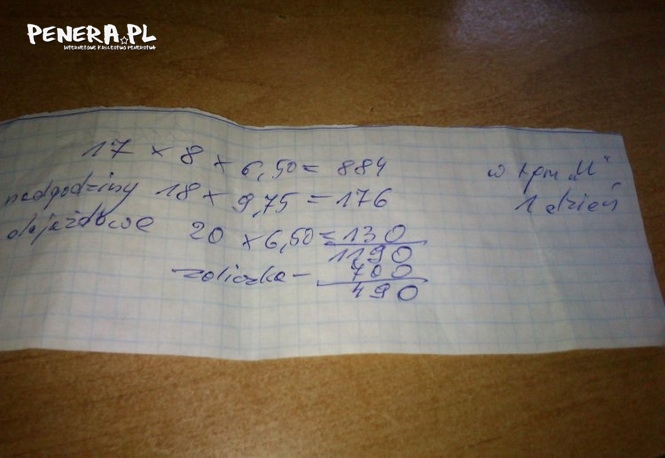 PENERA.PL
INTERNETOWE KRÓLESTWO PENERSTWA
17 x 8 x 6,50 = 884
w tym „U”
nadgodziny 18 x 9,75 = 176
1 dzień
dojazdowe 20 x 6,50 = 130
1190
zaliczka - 700
490